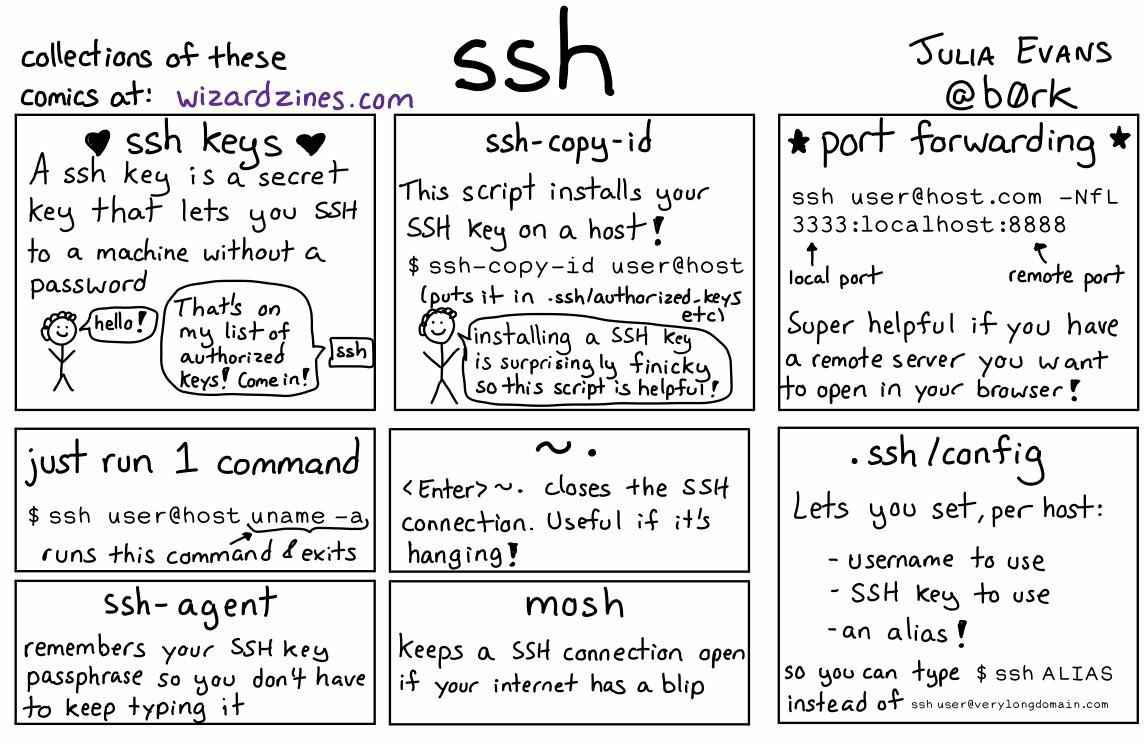 collections of these
comics at: wizardzines.com
ssh
JULIA EVANS
@b0rk
♥ ssh keys ♥
A ssh key is a secret
key that lets you SSH
to a machine without a
password
hello!
That's on
my list of
authorized
keys! Come in!
ssh
ssh-copy-id
This script installs your
SSH key on a host!
$ ssh-copy-id user@host
(puts it in .ssh/authorized_keys
etc)
installing a SSH key
is surprisingly finicky
so this script is helpful!
★ port forwarding ★
ssh user@host.com -NfL
3333:localhost:8888
local port
remote port
Super helpful if you have
a remote server you want
to open in your browser!
just run 1 command
$ ssh user@host uname -a
runs this command & exits
~.
<Enter>~. closes the SSH
connection. Useful if it's
hanging!
.ssh/config
Lets you set, per host:
- username to use
- SSH key to use
- an alias!
so you can type $ ssh ALIAS
instead of ssh user@verylongdomain.com
ssh-agent
remembers your SSH key
passphrase so you don't have
to keep typing it
mosh
keeps a SSH connection open
if your internet has a blip